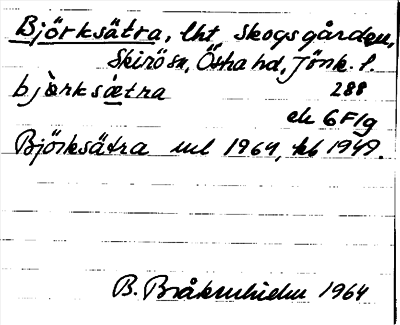 Björksätra, lht Skogsgården,
Skirö sn, Östra hd, Jönk. l.
bjærksætra 288
ek 6F1g
Björksätra ml 1964, kb 1949.
B. 1964